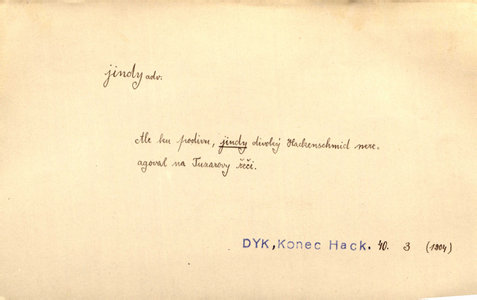 jindy adv.
Ale ku podivu, jindy divoký Hackenschmid nere-
agoval na Tuzarovy řeči.
DYK, Konec Hack. 40. 3 (1904)